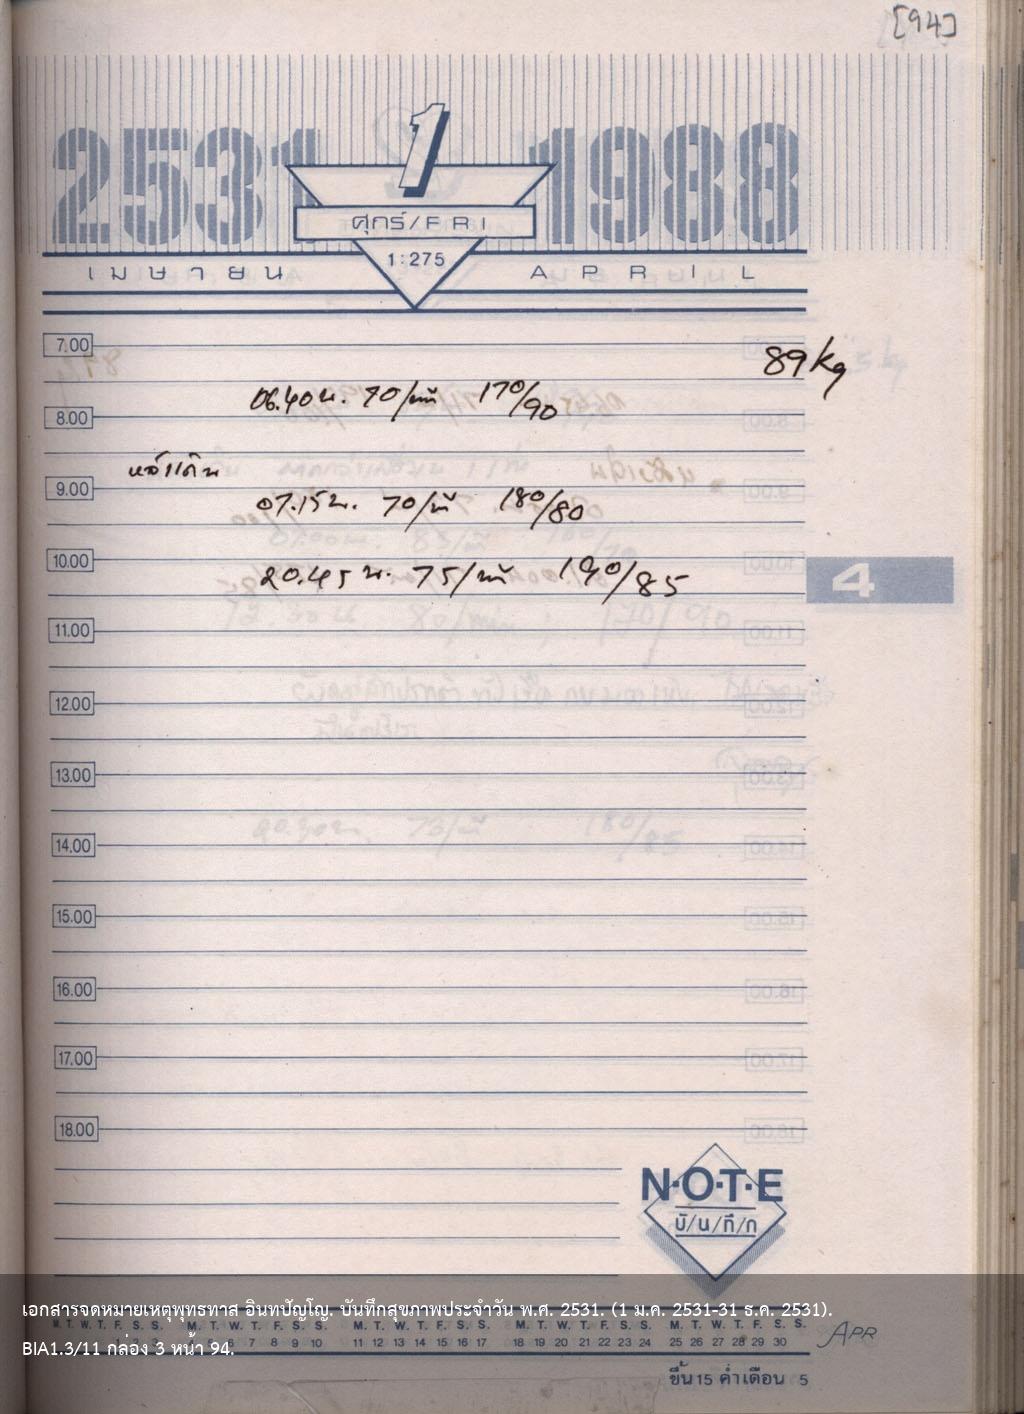 [94]
2531 1 1988
ศุกร์/FRI
1:275
เมษายน APRIL
7.00
89 kg
06.40 น. 70/นาที 170/90
8.00
หลังเดิน
9.00
07.15 น. 70/นาที 180/80
10.00
20.45 น. 75/นาที 190/85
4
11.00
12.00
13.00
14.00
15.00
16.00
17.00
18.00
N·O·T·E
บั/น/ทึ/ก
เอกสารจดหมายเหตุพุทธทาส อินทปัญโญ. บันทึกสุขภาพประจำวัน พ.ศ. 2531. (1 ม.ค. 2531-31 ธ.ค. 2531).
M. T. W. T. F. S. S. M. T. W. T. F. S. S. M. T. W. T. F. S. S. M. T. W. T. F. S. S. M. T. W. T. F. S. S.
1 2 3 4 5 6 7 8 9 10 11 12 13 14 15 16 17 18 19 20 21 22 23 24 25 26 27 28 29 30
APR
BIA1.3/11 กล่อง 3 หน้า 94.
ขึ้น 15 ค่ำเดือน 5